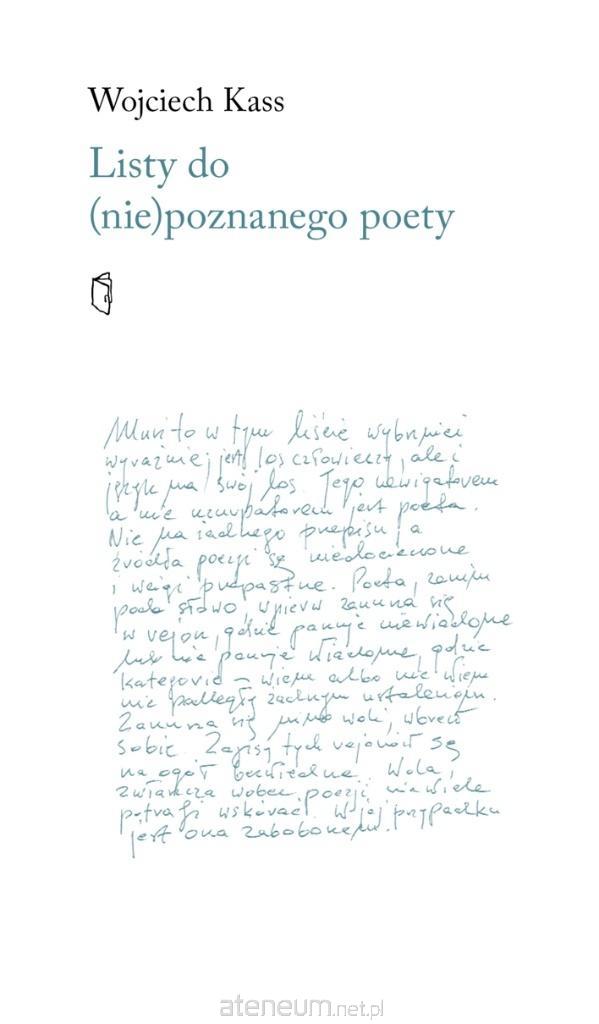 Wojciech Kass
Listy do
(nie)poznanego poety
Musi to w tym liście wybrzmieć
wyraźniej, jest los człowieczy, ale i
język ma swój los. Jego nawigatorem
a nie uzurpatorem jest poeta.
Nie ma żadnego przepisu, a
źródła poezji są niedocieczone
i wciąż przepastne. Poeta, zanim
poda słowo, wpierw zanurza się
w rejon, gdzie panuje niewiadome
lub nie panuje wiadome, gdzie
kategorie – wiem albo nie wiem
nie podległy żadnym ustaleniom.
Zanurza się mimo woli, wbrew
sobie. Zapisy tych rejonów są
na ogół bezwiedne. Wola,
zwłaszcza wobec poezji niewiele
potrafi wskórać. W jej przypadku
jest ona zabobonem.
ateneum.net.pl